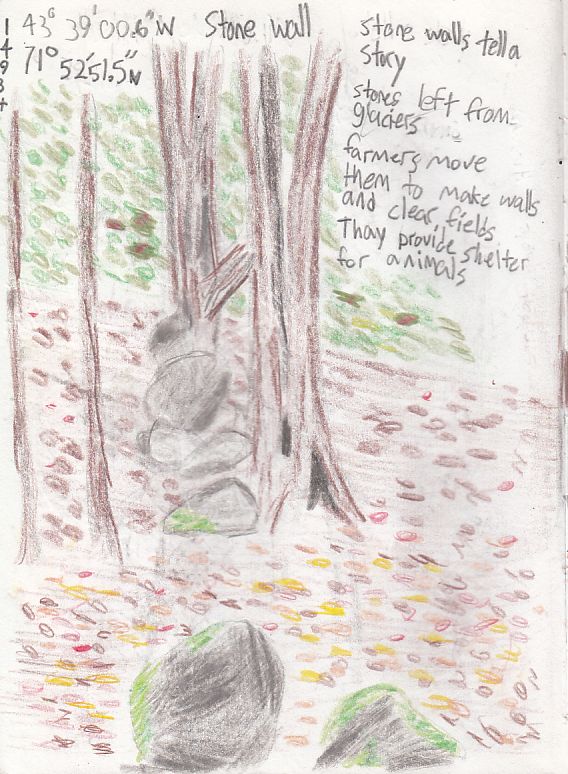 43° 39'00.6"W Stone wall
71° 52'51.5"N
1493+
stone walls tell a
story
stones left from
glaciers
farmers move
them to make walls
and clear fields
Thay provide shelter
for animals